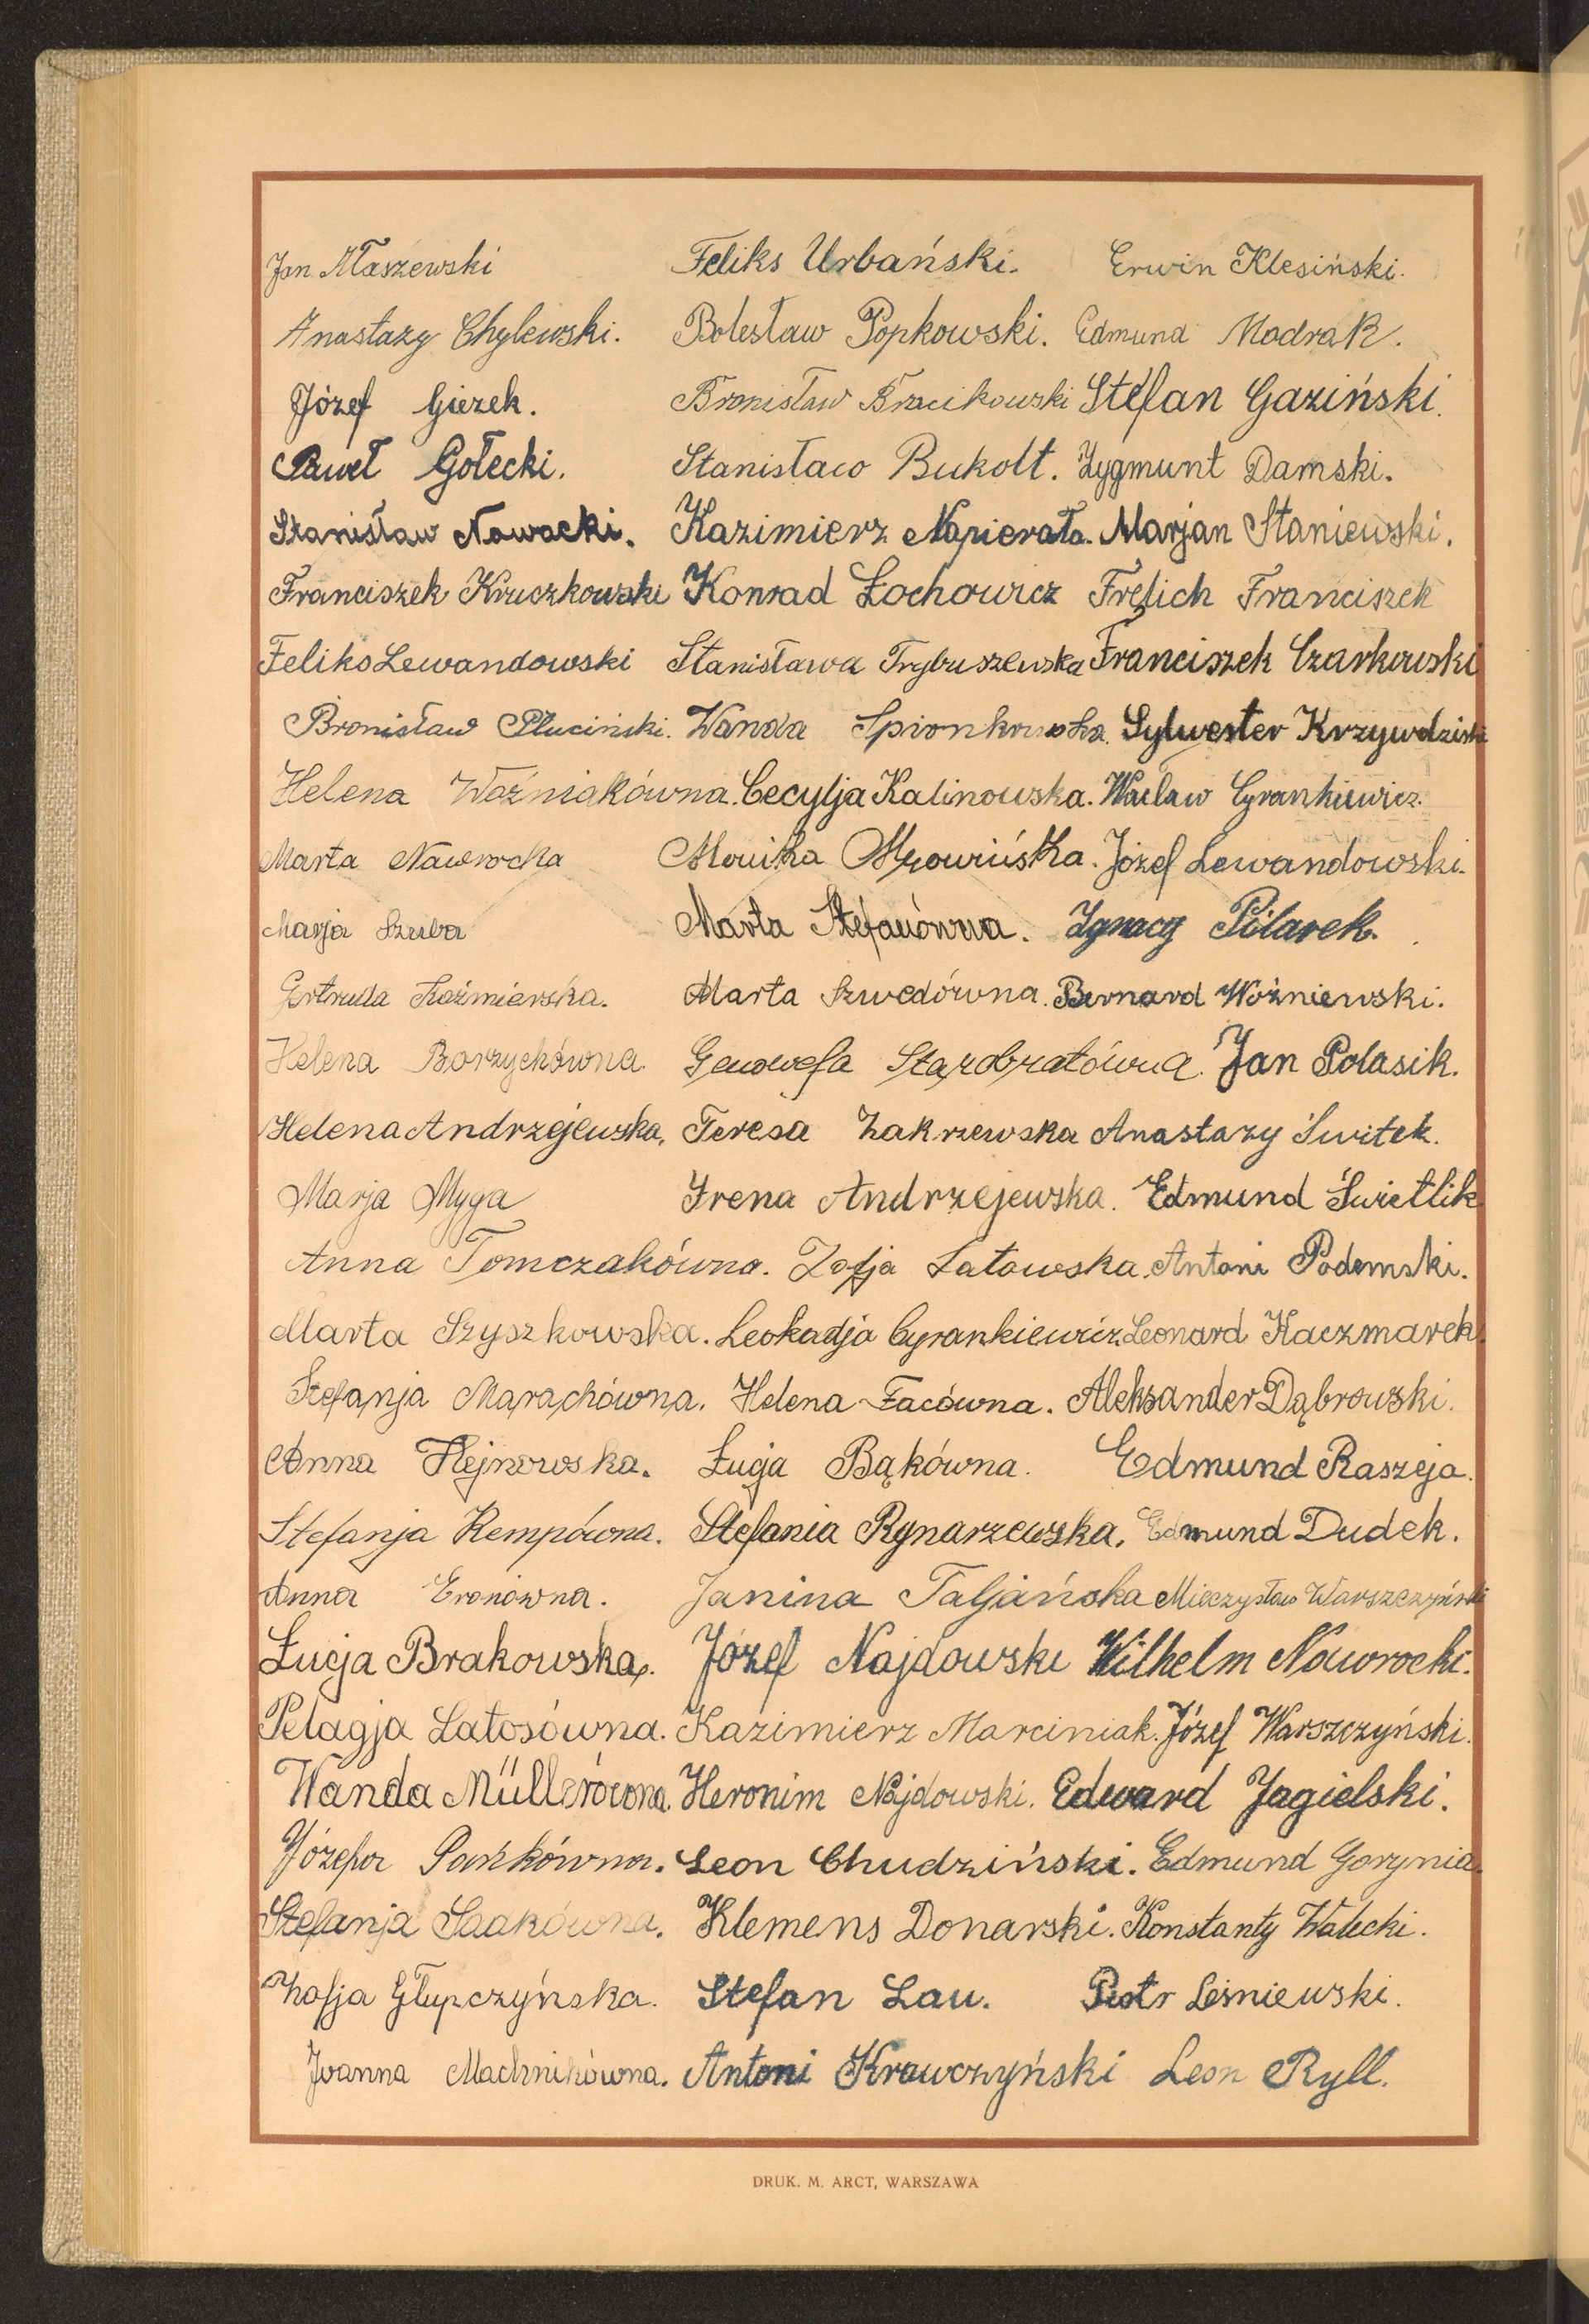 Jan Małaszewski Feliks Urbański. Erwin Klesiński.
Anastazy Chylewski. Bolesław Popkowski. Edmund Modrak.
Józef Giezek. Bronisław Stefan Gaziński.
Paweł Gołecki. Stanisław Bukolt. Zygmunt Damski.
Stanisław Nowacki. Kazimierz Napierała. Marjan Staniewski.
Franciszek Kruczkowski Konrad Łochowicz Frelich Franciszek
Feliks Lewandowski Stanisława Trybuszewska Franciszek Czarkowski
Bronisław Pluciński. Wanda Spionkowska. Sylwester Krzywdziński
Helena Woźniakówna. Cecylja Kalinowska. Wacław Cyrankiewicz.
Marta Nawrocka Monika Mrowińska. Józef Lewandowski.
Marja Szuba Marta Stefanówna. Ignacy Pilarek.
Gertruda Kaźmierska. Marta Szwedówna. Bernard Woźniewski.
Helena Borzychówna. Genowefa Jan Polasik.
Helena Andrzejewska, Teresa Zakrzewska Anastazy Świtek.
Marja Myga Irena Andrzejewska. Edmund Świetlik
Anna Tomczakówna. Zofja Latowska. Antoni Podemski.
Marta Szyszkowska. Leokadja Cyrankiewicz. Leonard Kaczmarek.
Stefanja Marachówna. Helena Łacówna. Aleksander Dąbrowski.
Anna Hejnowska. Łucja Bąkówna. Edmund Raszeja.
Stefanja Kempówna. Stefania Rynarzewska. Edmund Dudek.
Anna Eronówna. Janina Taljańska Mieczysław Warszczyński
Łucja Brakowska. Józef Najdowski Wilhelm Nawrocki.
Pelagja Latosówna. Kazimierz Marciniak. Józef Warszczyński.
Wanda Müllerówna. Heronim Najdowski. Edward Jagielski.
Józefa Pankówna. Leon Chudziński. Edmund Gorynia.
Stefanja Klemens Donarski. Konstanty Wałecki.
Zofja Głupczyńska. Stefan Lau. Piotr Leśniewski.
Joanna Machnikówna. Antoni Krawczyński Leon Ryll.
DRUK. M. ARCT, WARSZAWA